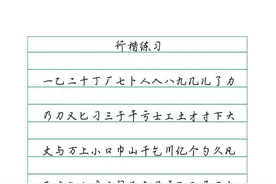 行楷练习
一乙二十丁厂七卜人入八九几儿了力
乃刀又匕刁三于干亏士工土才寸下大
丈与万上小口巾山千乞川亿个勺久凡